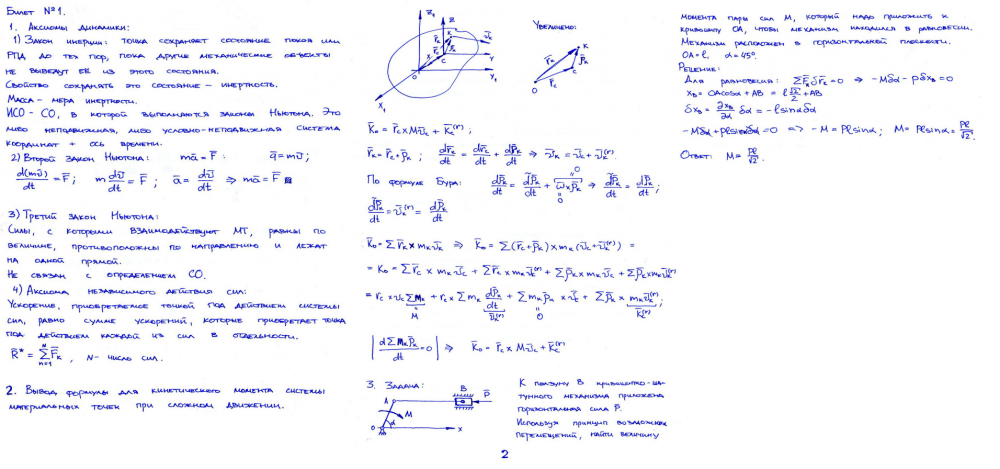 Билет №1.
1. Аксиомы динамики:
1) Закон инерции: точка сохраняет состояние покоя или
РПД до тех пор, пока другие механические объекты
не выведут её из этого состояния.
Свойство сохранять это состояние – инертность.
Масса – мера инертности.
ИСО – СО, в которой выполняются законы Ньютона. Это
либо неподвижная, либо условно-неподвижная система
координат + ось времени.
2) Второй закон Ньютона: ma̅ = F̅ : q̅ = mv̅ ;
d(mv̅)/dt = F̅ ; m dv̅/dt = F̅ ; a̅ = dv̅/dt ⇒ ma̅ = F̅
3) Третий закон Ньютона:
Силы, с которыми взаимодействуют МТ, равны по
величине, противоположны по направлению и лежат
на одной прямой.
Не связан с определением СО.
4) Аксиома независимого действия сил:
Ускорение, приобретаемое точкой под действием системы
сил, равно сумме ускорений, которые приобретает точка
под действием каждой из сил в отдельности.
R̅* = Σ F̅к , N – число сил.
2. Вывод формулы для кинетического момента системы
материальных точек при сложном движении.
Увеличено:
K̅o = r̅c × Mv̅c + K̅c⁽ʳ⁾ ;
r̅к = r̅c + ρ̅к ; dr̅к/dt = dr̅c/dt + dρ̅к/dt ⇒ v̅к = v̅c + v̅к⁽ʳ⁾.
По формуле Бура: dρ̅к/dt = d̃ρ̅к/dt + ω̅ × ρ̅к ⇒ dρ̅к/dt = d̃ρ̅к/dt ;
d̃ρ̅к/dt = v̅к⁽ʳ⁾ = dρ̅к/dt
K̅o = Σ r̅к × mкv̅к ⇒ K̅o = Σ(r̅c + ρ̅к) × mк(v̅c + v̅к⁽ʳ⁾) =
= Ko = Σ r̅c × mкv̅c + Σ r̅c × mкv̅к⁽ʳ⁾ + Σ ρ̅к × mкv̅c + Σ ρ̅к × mкv̅к⁽ʳ⁾
= rc × v̅c Σmк + rc × Σmк dρ̅к/dt + Σmкρ̅к × v̅c + Σ ρ̅к × mкv̅к⁽ʳ⁾ ;
| dΣmкρ̅к/dt = 0 | ⇒ K̅o = r̅c × Mv̅c + K̅c⁽ʳ⁾
3. Задача:
A B P̅ M α O x
К ползуну В кривошипно-ша-
тунного механизма приложена
горизонтальная сила P̅.
Используя принцип возможных
перемещений, найти величину
момента пары сил М, который надо приложить к
кривошипу ОА, чтобы механизм находился в равновесии.
Механизм расположен в горизонтальной плоскости.
OA = l, α = 45°.
Решение:
Для равновесия: ΣF̅кδr̅к = 0 ⇒ -Mδα - Pδxв = 0
xв = OAcosα + AB = l√2/2 + AB
δxв = ∂xв/∂α δα = -lsinαδα
-Mδα + Plsinαδα = 0 => -M = Plsinα; M = Plsinα = Pl/√2.
Ответ: M = Pl/√2.
2